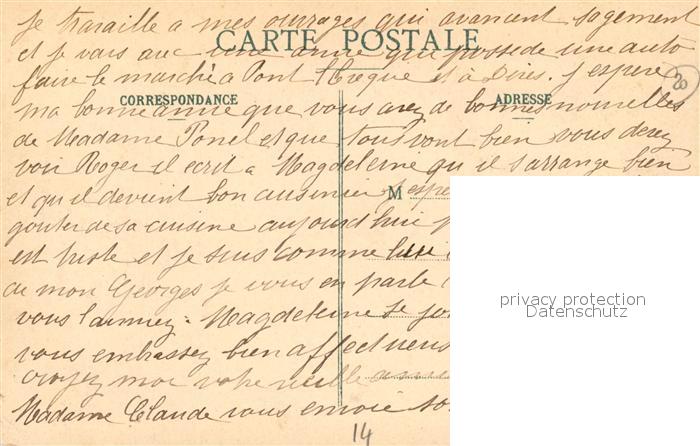 Je travaille a mes ouvrages qui avancent sagement
CARTE POSTALE
et je vais avec une amie qui possede une auto
faire le marché a Pont l'Eveque et a Dives. J'espere
28
CORRESPONDANCE
ADRESSE
ma bonne amie que vous avez de bonnes nouvelles
de Madame Ponel et que tous vont bien vous devez
voir Roger il ecrit a Magdeleine qu il s'arrange bien
et qu il devient bon cuisinier
M
gouter de sa cuisine aujourd'hui
est triste et je suis comme lui
de mon Georges je vous en parle
vous l'aimiez. Magdeleine se
vous embrassez bien affectueus
croyez moi votre vieille amie
Madame Claude vous envoie
14
privacy protection
Datenschutz